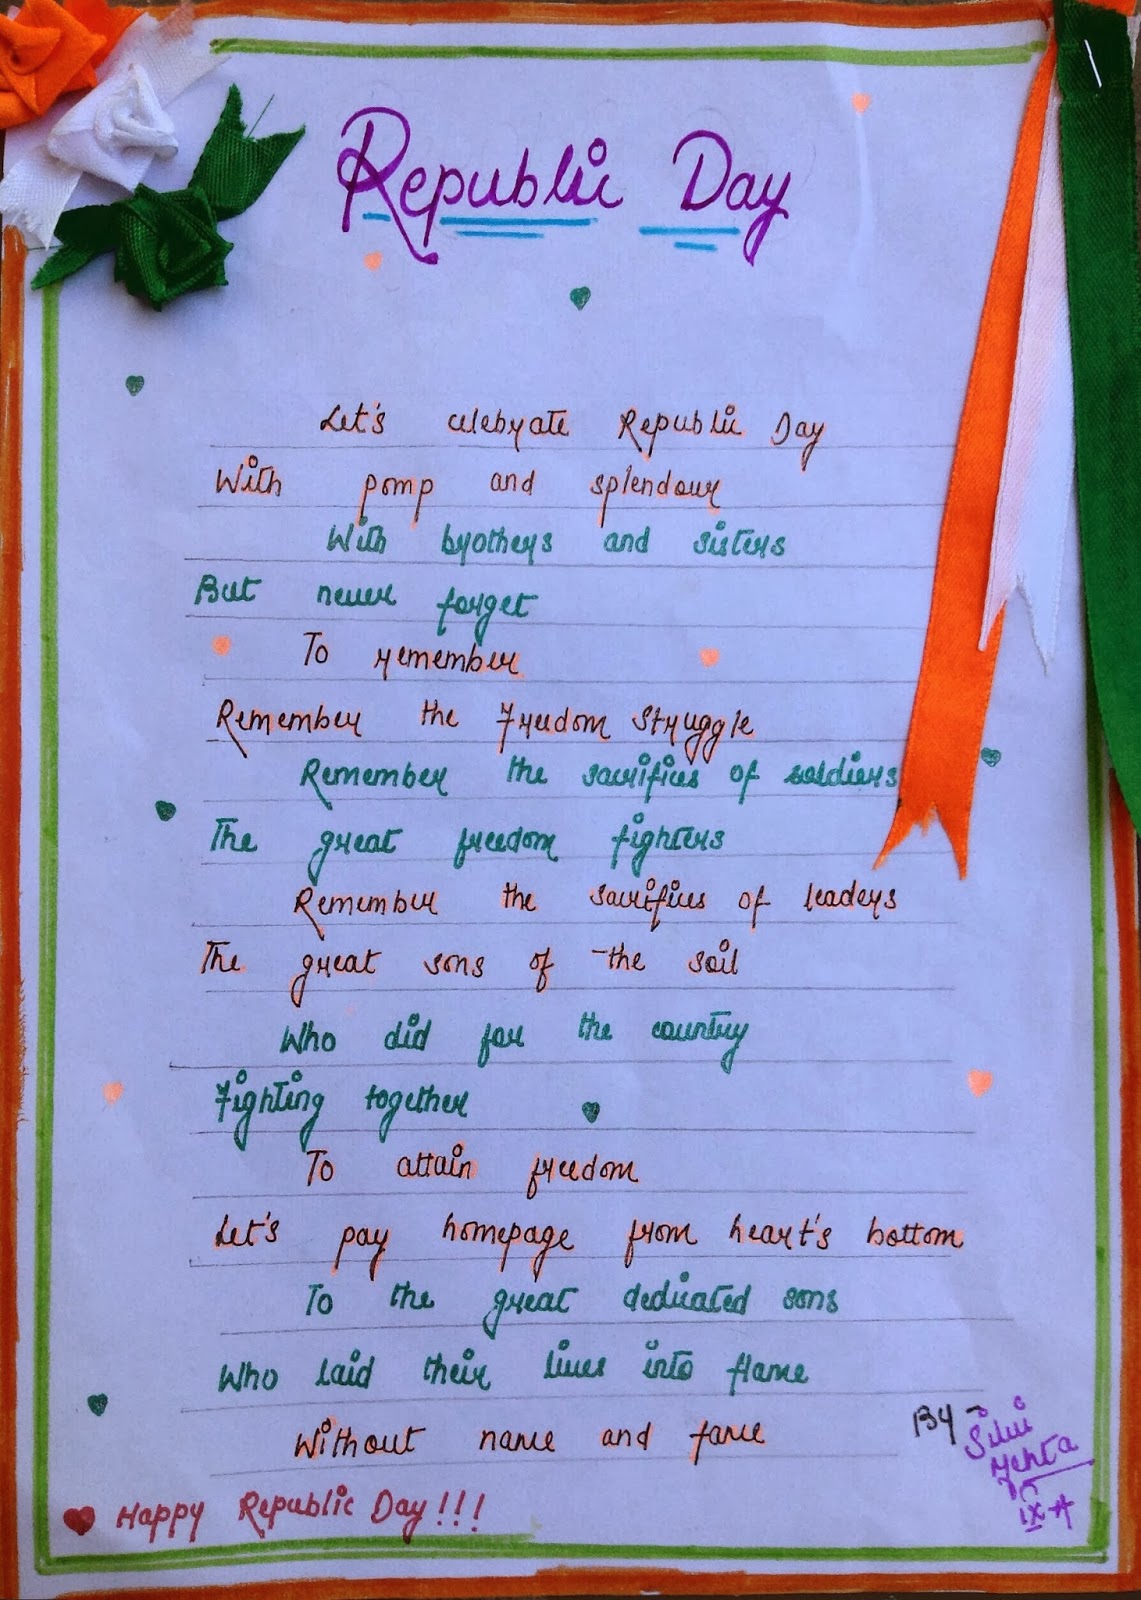 Republic Day
Let's celebrate Republic Day
With pomp and splendour
With brothers and sisters
But never forget
To remember
Remember the Freedom Struggle
Remember the sacrifices of soldiers
The great freedom fighters
Remember the sacrifices of leaders
The great sons of the soil
Who did for the country
Fighting together
To attain freedom
Let's pay homepage from heart's bottom
To the great dedicated sons
Who laid their lives into flame
Without name and fame
By -
Mehta
IX-A
Happy Republic Day!!!